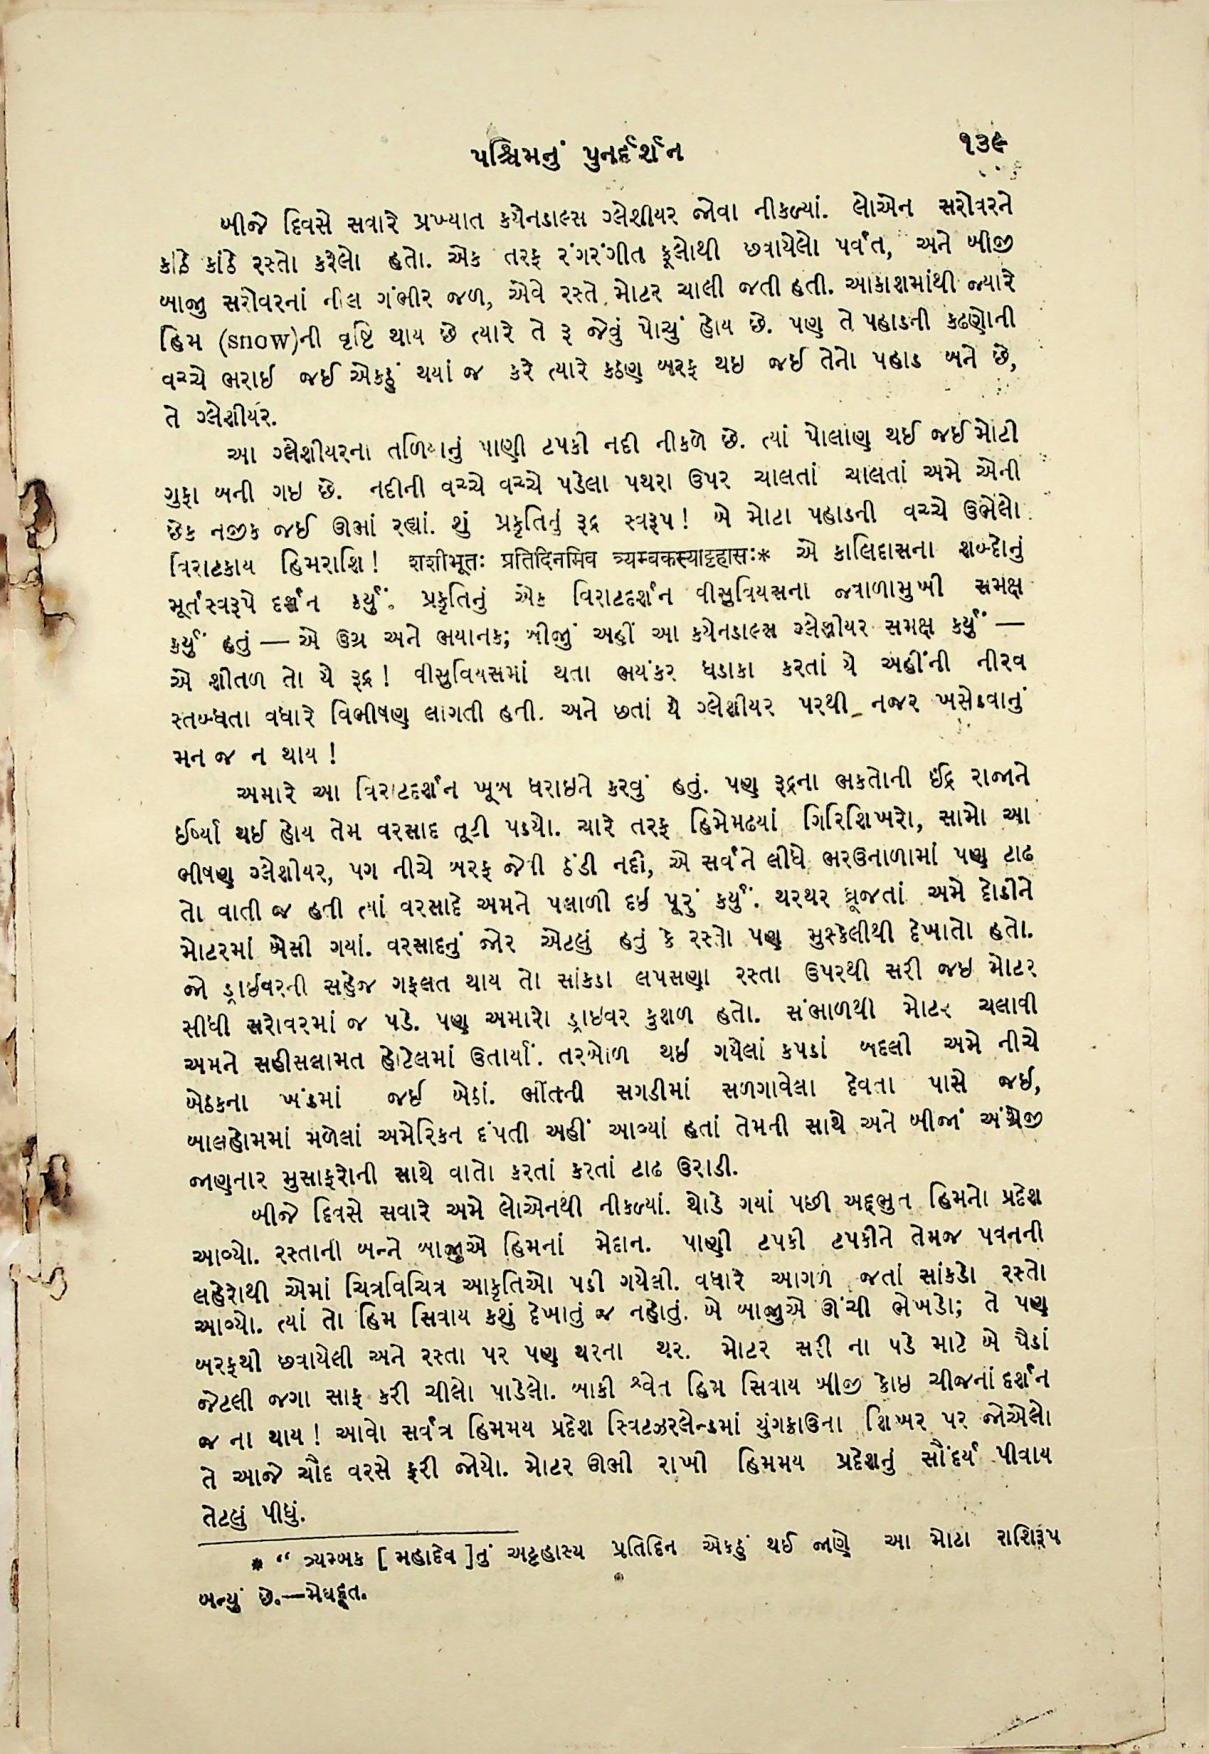 પશ્ચિમનું પુનર્દર્શન ૧૩૯
બીજે દિવસે સવારે પ્રખ્યાત કયેનડાલ્સ ગ્લેશીયર જોવા નીકળ્યાં. લોએન સરોવરને
કાંઠે કાંઠે રસ્તો કરેલો હતો. એક તરફ રંગરંગીત ફૂલોથી છવાયેલો પર્વત, અને બીજી
બાજુ સરોવરનાં નીલ ગંભીર જળ, એવે રસ્તે મોટર ચાલી જતી હતી. આકાશમાંથી જ્યારે
હિમ (snow)ની વૃષ્ટિ થાય છે ત્યારે તે રૂ જેવું પોચું હોય છે. પણ તે પહાડની કઢણોની
વચ્ચે ભરાઇ જઈ એકઠું થયાં જ કરે ત્યારે કઠણ બરફ થઇ જઈ તેનો પહાડ બને છે,
તે ગ્લેશીયર.
આ ગ્લેશીયરના તળિયાનું પાણી ટપકી નદી નીકળે છે. ત્યાં પોલાણ થઈ જઈ મોટી
ગુફા બની ગઇ છે. નદીની વચ્ચે વચ્ચે પડેલા પથરા ઉપર ચાલતાં ચાલતાં અમે એની
છેક નજીક જઈ ઊભાં રહ્યાં. શું પ્રકૃતિનું રૂદ્ર સ્વરૂપ! બે મોટા પહાડની વચ્ચે ઉભેલો
વિરાટકાય હિમરાશિ! शशीभूतः प्रतिदिनमिव त्र्यम्बकस्याट्टहासः* એ કાલિદાસના શબ્દોનું
મૂર્તસ્વરૂપે દર્શન કર્યું. પ્રકૃતિનું એક વિરાટદર્શન વીસુવિયસના જ્વાળામુખી સમક્ષ
કર્યું હતું — એ ઉગ્ર અને ભયાનક; બીજું અહીં આ કયેનડાલ્સ ગ્લેશીયર સમક્ષ કર્યું —
એ શીતળ તો યે રૂદ્ર! વીસુવિયસમાં થતા ભયંકર ધડાકા કરતાં યે અહીંની નીરવ
સ્તબ્ધતા વધારે વિભીષણ લાગતી હતી. અને છતાં યે ગ્લેશીયર પરથી નજર ખસેડવાનું
મન જ ન થાય!
અમારે આ વિરાટદર્શન ખૂબ ધરાઇને કરવું હતું. પણ રૂદ્રના ભકતોની ઇંદ્ર રાજાને
ઈર્ષ્યા થઈ હોય તેમ વરસાદ તૂટી પડયો. ચારે તરફ હિમેમઢયાં ગિરિશિખરો, સામો આ
ભીષણ ગ્લેશીયર, પગ નીચે બરફ જેવી ઠંડી નદી, એ સર્વને લીધે ભરઉનાળામાં પણ ટાઢ
તો વાતી જ હતી ત્યાં વરસાદે અમને પલાળી દઇ પૂરું કર્યું. થરથર ધ્રૂજતાં અમે દોડીને
મોટરમાં બેસી ગયાં. વરસાદનું જોર એટલું હતું કે રસ્તો પણ મુશ્કેલીથી દેખાતો હતો.
જો ડ્રાઇવરની સહેજ ગફલત થાય તો સાંકડા લપસણા રસ્તા ઉપરથી સરી જઇ મોટર
સીધી સરોવરમાં જ પડે. પણ અમારો ડ્રાઇવર કુશળ હતો. સંભાળથી મોટર ચલાવી
અમને સહીસલામત હોટેલમાં ઉતાર્યાં. તરબોળ થઇ ગયેલાં કપડાં બદલી અમે નીચે
બેઠકના ખંડમાં જઇ બેઠાં. ભીંતની સગડીમાં સળગાવેલા દેવતા પાસે જઇ,
બાલહોમમાં મળેલાં અમેરિકન દંપતી અહીં આવ્યાં હતાં તેમની સાથે અને બીજાં અંગ્રેજી
જાણનાર મુસાફરોની સાથે વાતો કરતાં કરતાં ટાઢ ઉરાડી.
બીજે દિવસે સવારે અમે લોએનથી નીકળ્યાં. થોડે ગયાં પછી અદ્દભુત હિમનો પ્રદેશ
આવ્યો. રસ્તાની બન્ને બાજુએ હિમનાં મેદાન. પાણી ટપકી ટપકીને તેમજ પવનની
લહેરોથી એમાં ચિત્રવિચિત્ર આકૃતિઓ પડી ગયેલી. વધારે આગળ જતાં સાંકડો રસ્તો
આવ્યો. ત્યાં તો હિમ સિવાય કશું દેખાતું જ નહોતું. બે બાજુએ ઊંચી ભેખડો; તે પણ
બરફથી છવાયેલી અને રસ્તા પર પણ થરના થર. મોટર સરી ના પડે માટે બે પૈડાં
જેટલી જગા સાફ કરી ચીલો પાડેલો. બાકી શ્વેત હિમ સિવાય બીજી કોઇ ચીજનાં દર્શન
જ ના થાય! આવો સર્વત્ર હિમમય પ્રદેશ સ્વિટઝરલેન્ડમાં યુંગફ્રાઉના શિખર પર જોએલો
તે આજે ચૌદ વરસે ફરી જોયો. મોટર ઊભી રાખી હિમમય પ્રદેશનું સૌંદર્ય પીવાય
તેટલું પીધું.
* “ ત્ર્યમ્બક [ મહાદેવ ]નું અટ્ટહાસ્ય પ્રતિદિન એકઠું થઈ જાણે આ મોટા રાશિરૂપ
બન્યું છે.—મેઘદૂત.